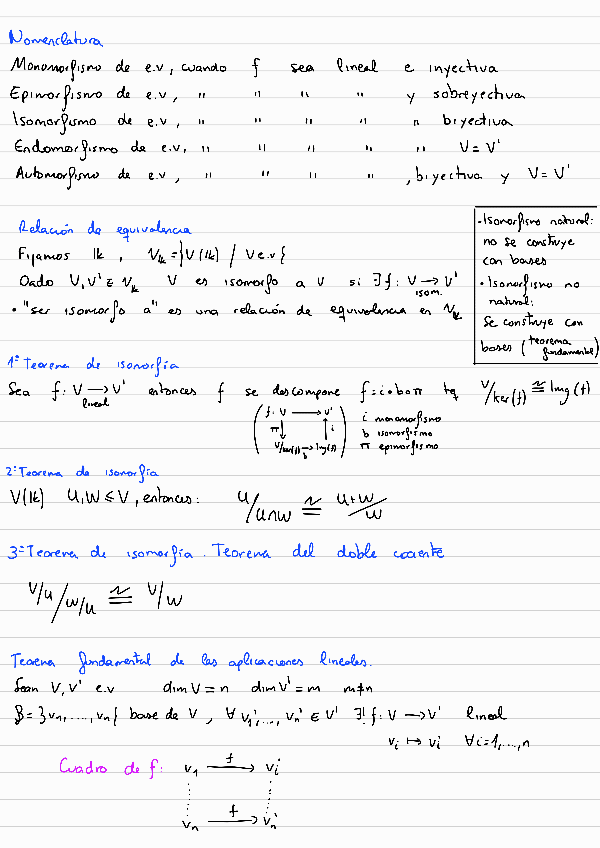 Nomenclatura
Monomorfismo de e.v, cuando f sea lineal e inyectiva
Epimorfismo de e.v, " " " " y sobreyectiva
Isomorfismo de e.v, " " " " " biyectiva
Endomorfismo de e.v, " " " " " V = V'
Automorfismo de e.v, " " " " , biyectiva y V = V'
Relación de equivalencia
Fijamos lk, V_lk = {V(lk) / V e.v}
Dado V, V' ∈ V_lk V es isomorfo a V si ∃ f: V → V'
isom.
• "ser isomorfo a" es una relación de equivalencia en V_lk
• Isomorfismo natural:
no se construye
con bases
• Isomorfismo no
natural:
Se construye con
bases (teorema
fundamental)
1º Teorema de isomorfía
Sea f: V → V' entonces f se descompone f = i∘b∘π tq V/ker(f) ≅ Img(f)
lineal
f: V → V'
π ↓ ↑ i
V/ker(f) → Img(f)
b
i monomorfismo
b isomorfismo
π epimorfismo
2º Teorema de isomorfía
V(lk) U, W ≤ V, entonces: U/U∩W ≅ U+W/W
3º Teorema de isomorfía. Teorema del doble cociente
V/U / W/U ≅ V/W
Teorema fundamental de las aplicaciones lineales.
Sean V, V' e.v dim V = n dim V' = m m≠n
B = {v1, ..., vn} base de V, ∀ v1', ..., vn' ∈ V' ∃! f: V → V' lineal
vi ↦ vi' ∀i=1,...,n
Cuadro de f: v1 →f vi'
vn →f vn'